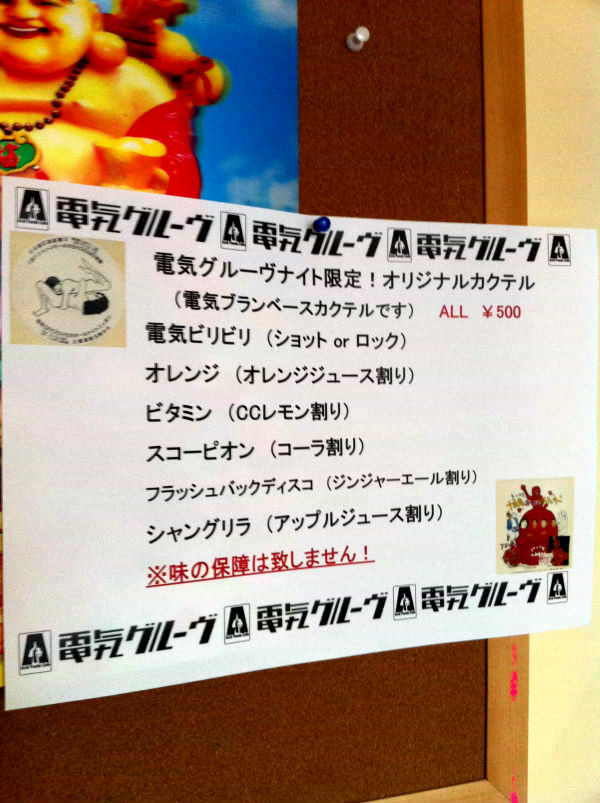 電気グルーヴ 電気グルーヴ 電気グルーヴ
電気グルーヴナイト限定！オリジナルカクテル
（電気ブランベースカクテルです） ALL ￥500
電気ビリビリ（ショット or ロック）
オレンジ（オレンジジュース割り）
ビタミン（CCレモン割り）
スコーピオン（コーラ割り）
フラッシュバックディスコ（ジンジャーエール割り）
シャングリラ（アップルジュース割り）
※味の保障は致しません！
電気グルーヴ 電気グルーヴ 電気グルーヴ